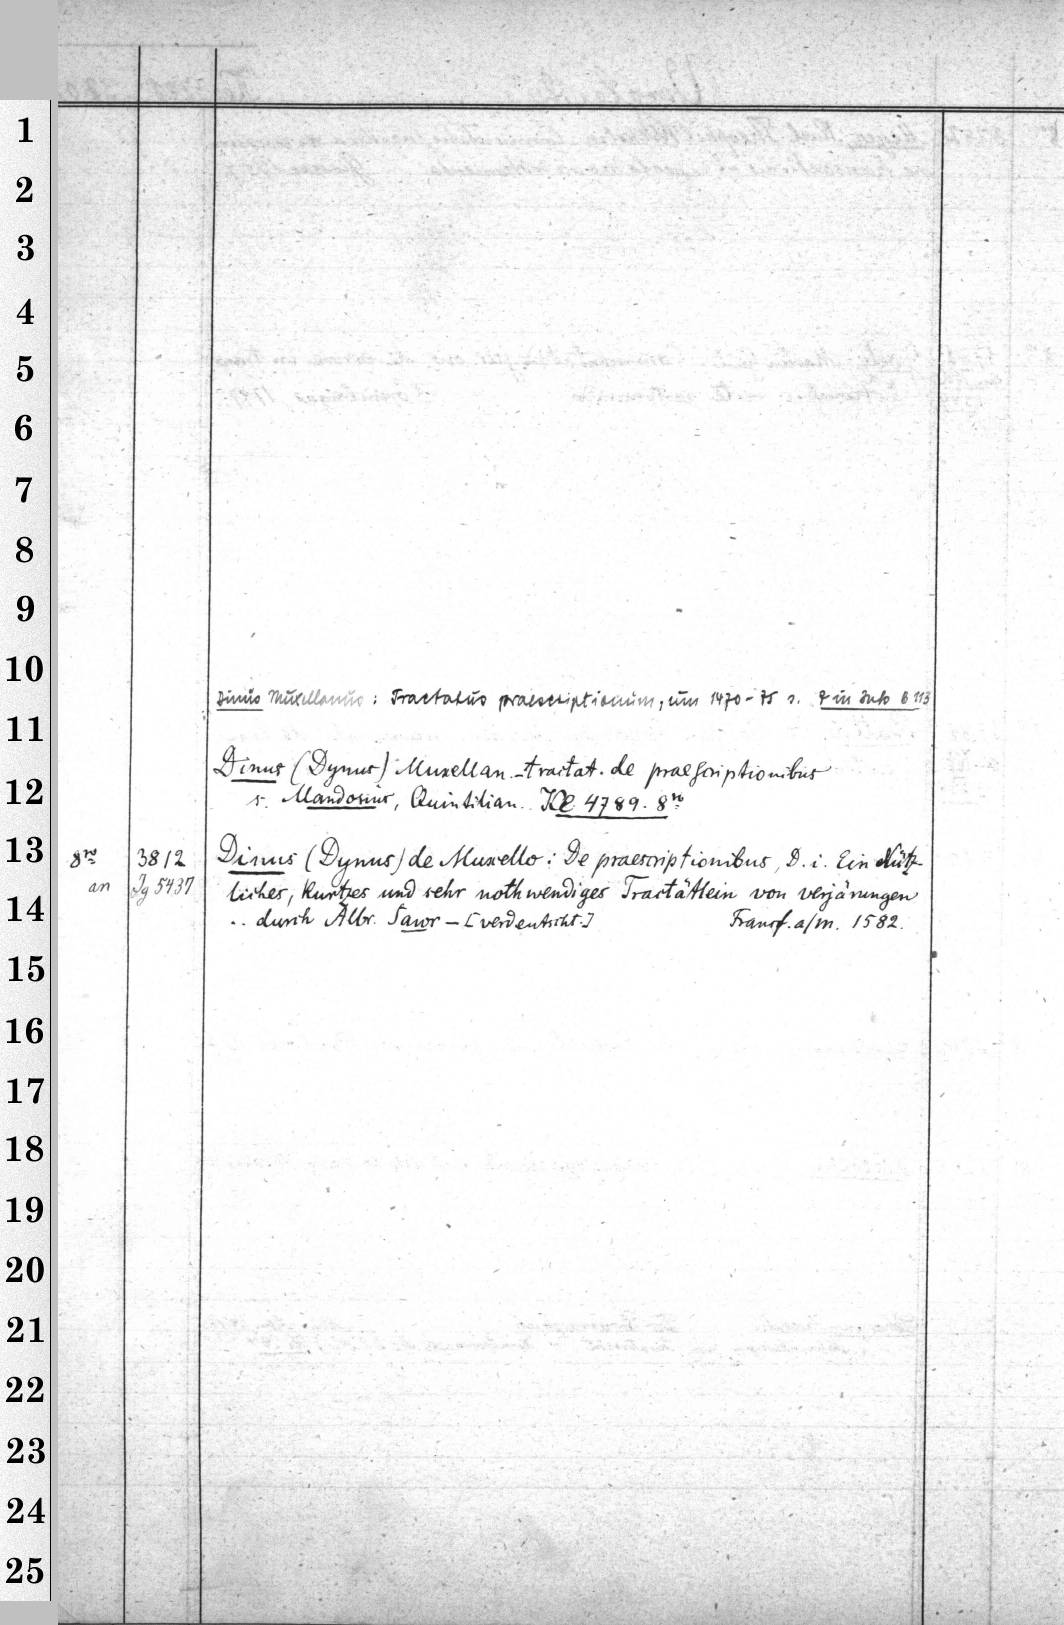 1
2
3
4
5
6
7
8
9
10
Dinus Muxellanus: Tractatus praescriptionum, um 1470-75 s. 4 in Juk 6 113
11
Dinus (Dynus) Muxellan. tractat. de praescriptionibus
12
s. Mandosius, Quintilian. Ke 4789. 8ro
13
8ro 3812 Dinus (Dynus) de Muxello: De praescriptionibus, D. i. Ein Nütz-
an Jg 5437 liches, kurtzes und sehr nothwendiges Tractätlein von verjärungen
14
.. durch Albr. Sawr – [verdeutscht.] Francf. a/m. 1582.
15
16
17
18
19
20
21
22
23
24
25